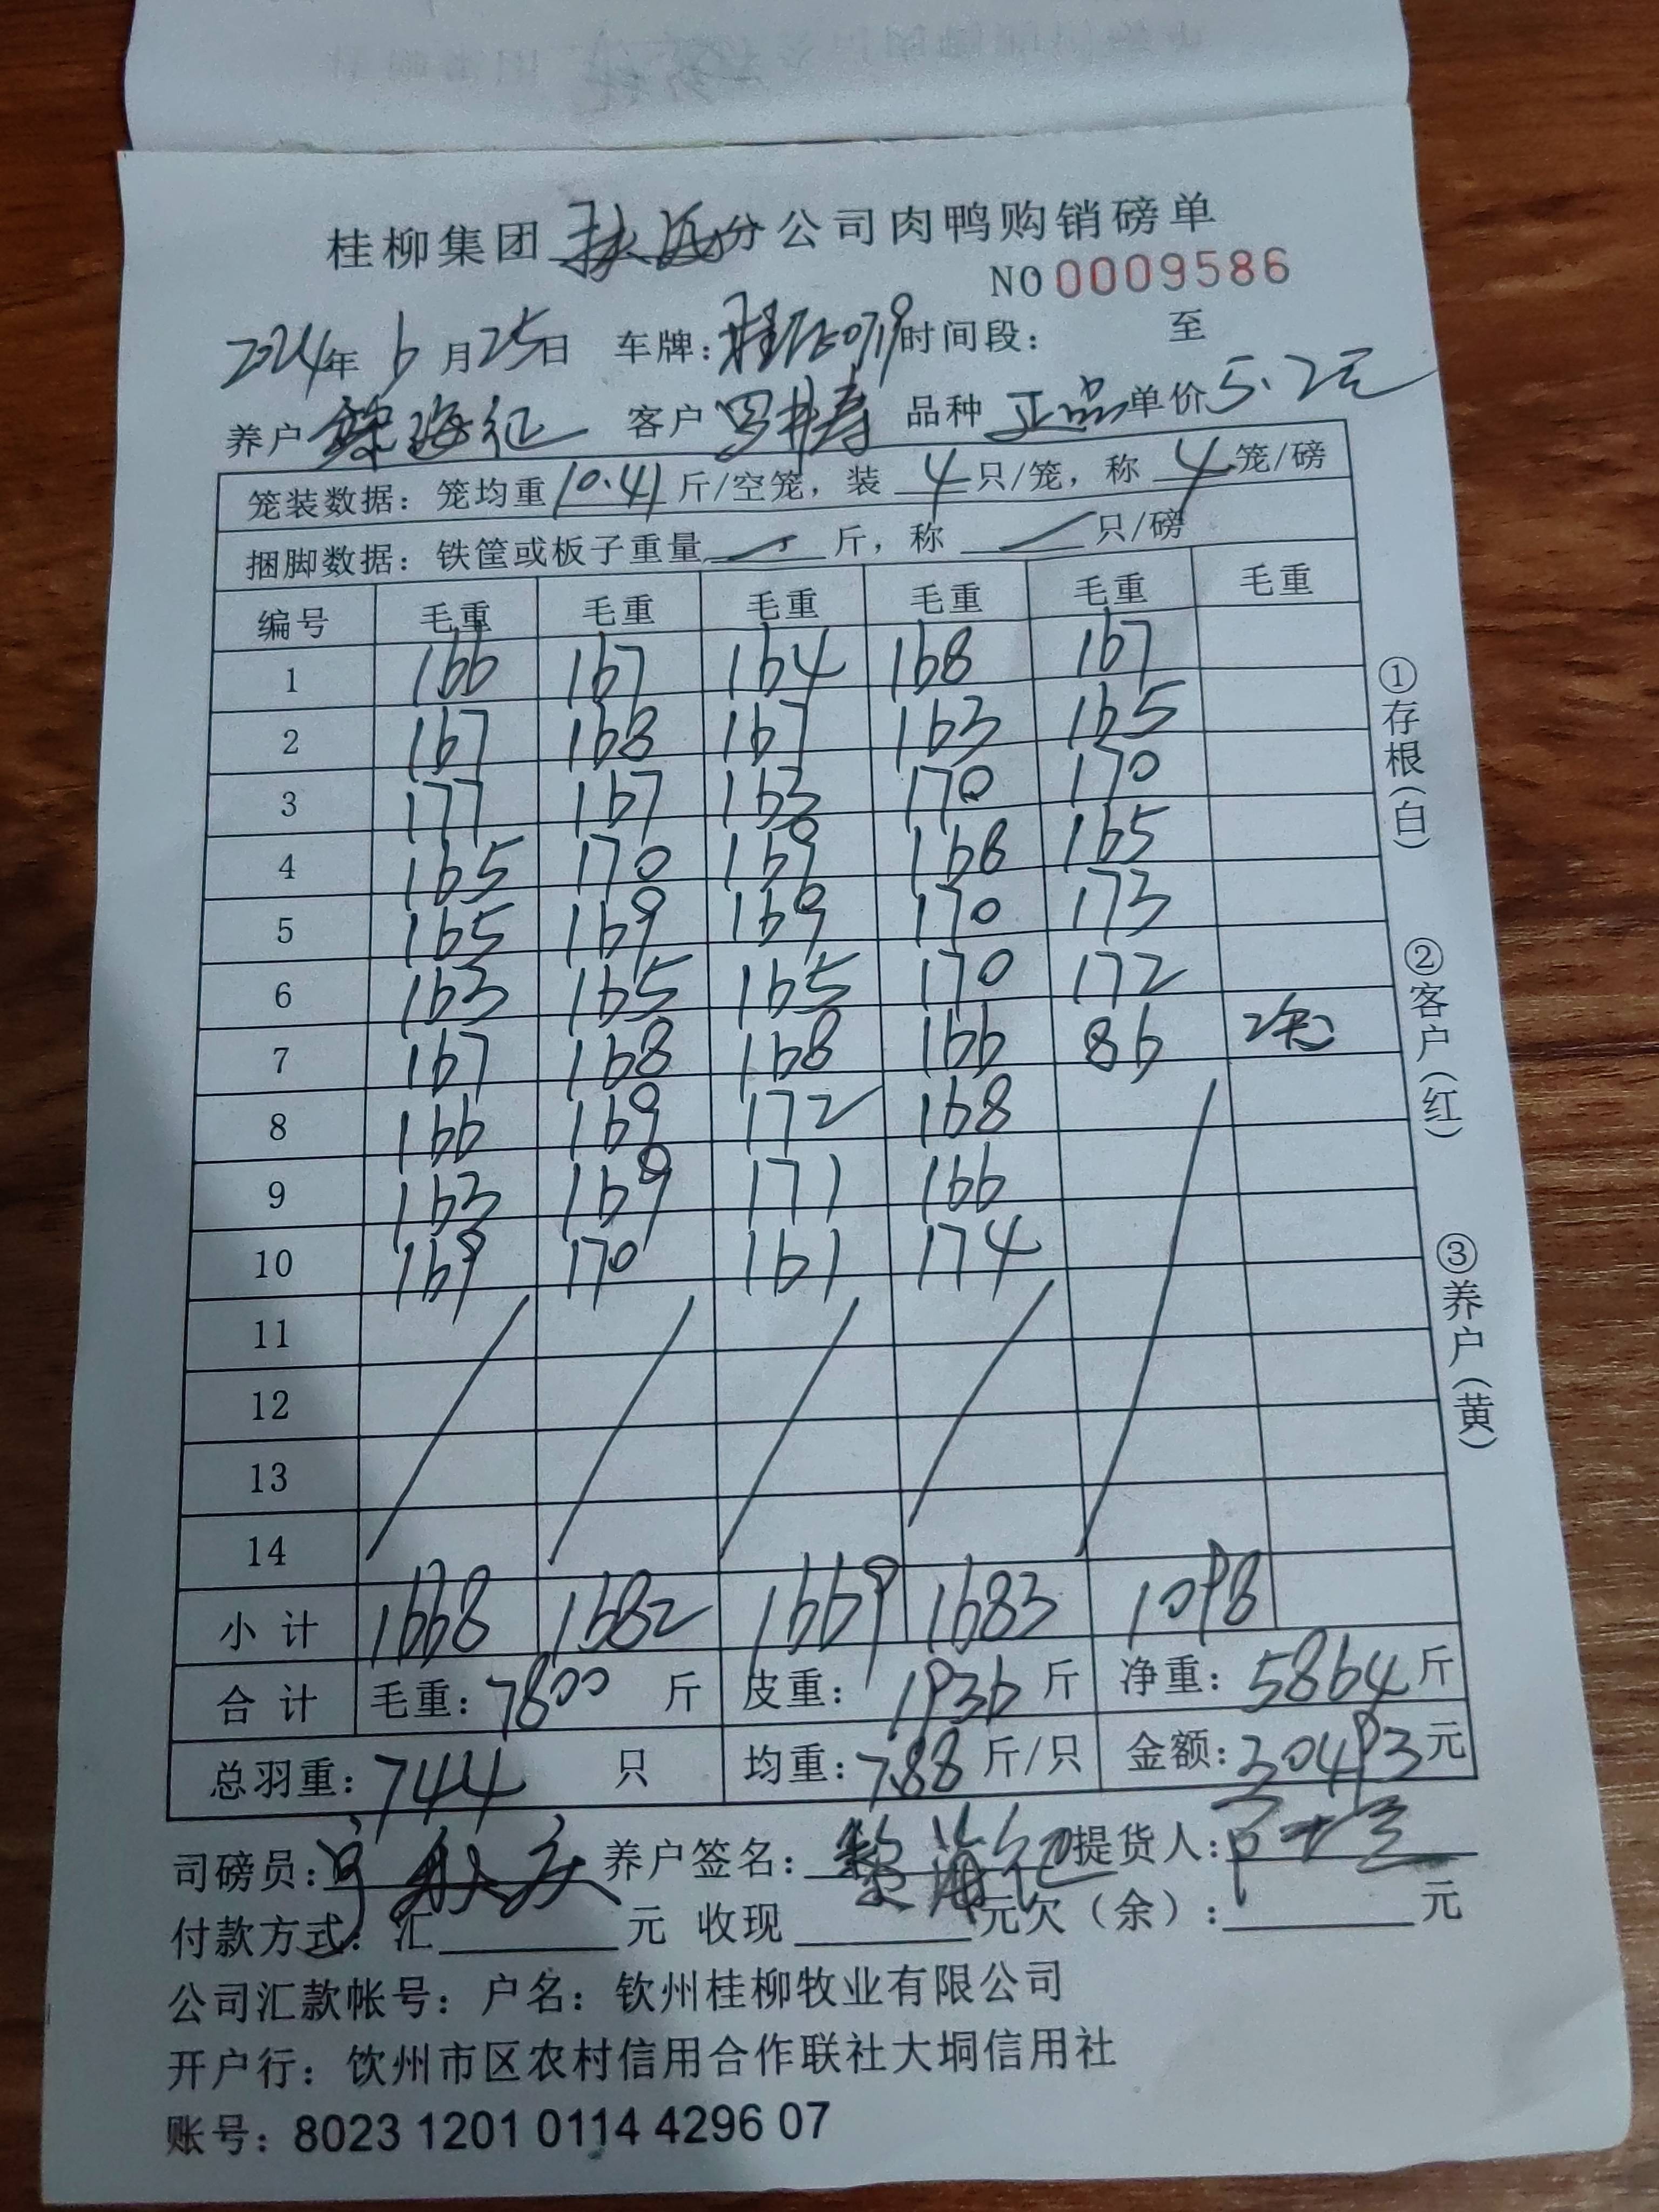 桂柳集团 分公司肉鸭购销磅单
NO 0009586
2024年 6月25日 车牌: 时间段: 至
养户 海征 客户 罗 寿 品种 正品 单价 5.2元
笼装数据: 笼均重 10.41 斤/空笼, 装 4 只/笼, 称 4 笼/磅
捆脚数据: 铁筐或板子重量 斤, 称 只/磅
编号 毛重 毛重 毛重 毛重 毛重 毛重
1 166 167 164 168 167
2 167 168 167 163 165
3 177 167 163 170 170
4 165 170 169 168 165
5 165 169 169 170 173
6 163 165 165 170 172
7 167 168 168 166 86 2笼
8 166 169 172 168
9 163 169 171 166
10 169 170 161 174
11
12
13
14
小计 1668 1682 1669 1683 1098
合计 毛重: 7800 斤 皮重: 1936 斤 净重: 5864 斤
总羽重: 744 只 均重: 7.88 斤/只 金额: 30493 元
司磅员: 养户签名: 提货人:
付款方式: 汇 元 收现 元欠(余): 元
公司汇款帐号: 户名: 钦州桂柳牧业有限公司
开户行: 钦州市区农村信用合作联社大垌信用社
账号: 8023 1201 0114 4296 07
①存根(白)
②客户(红)
③养户(黄)